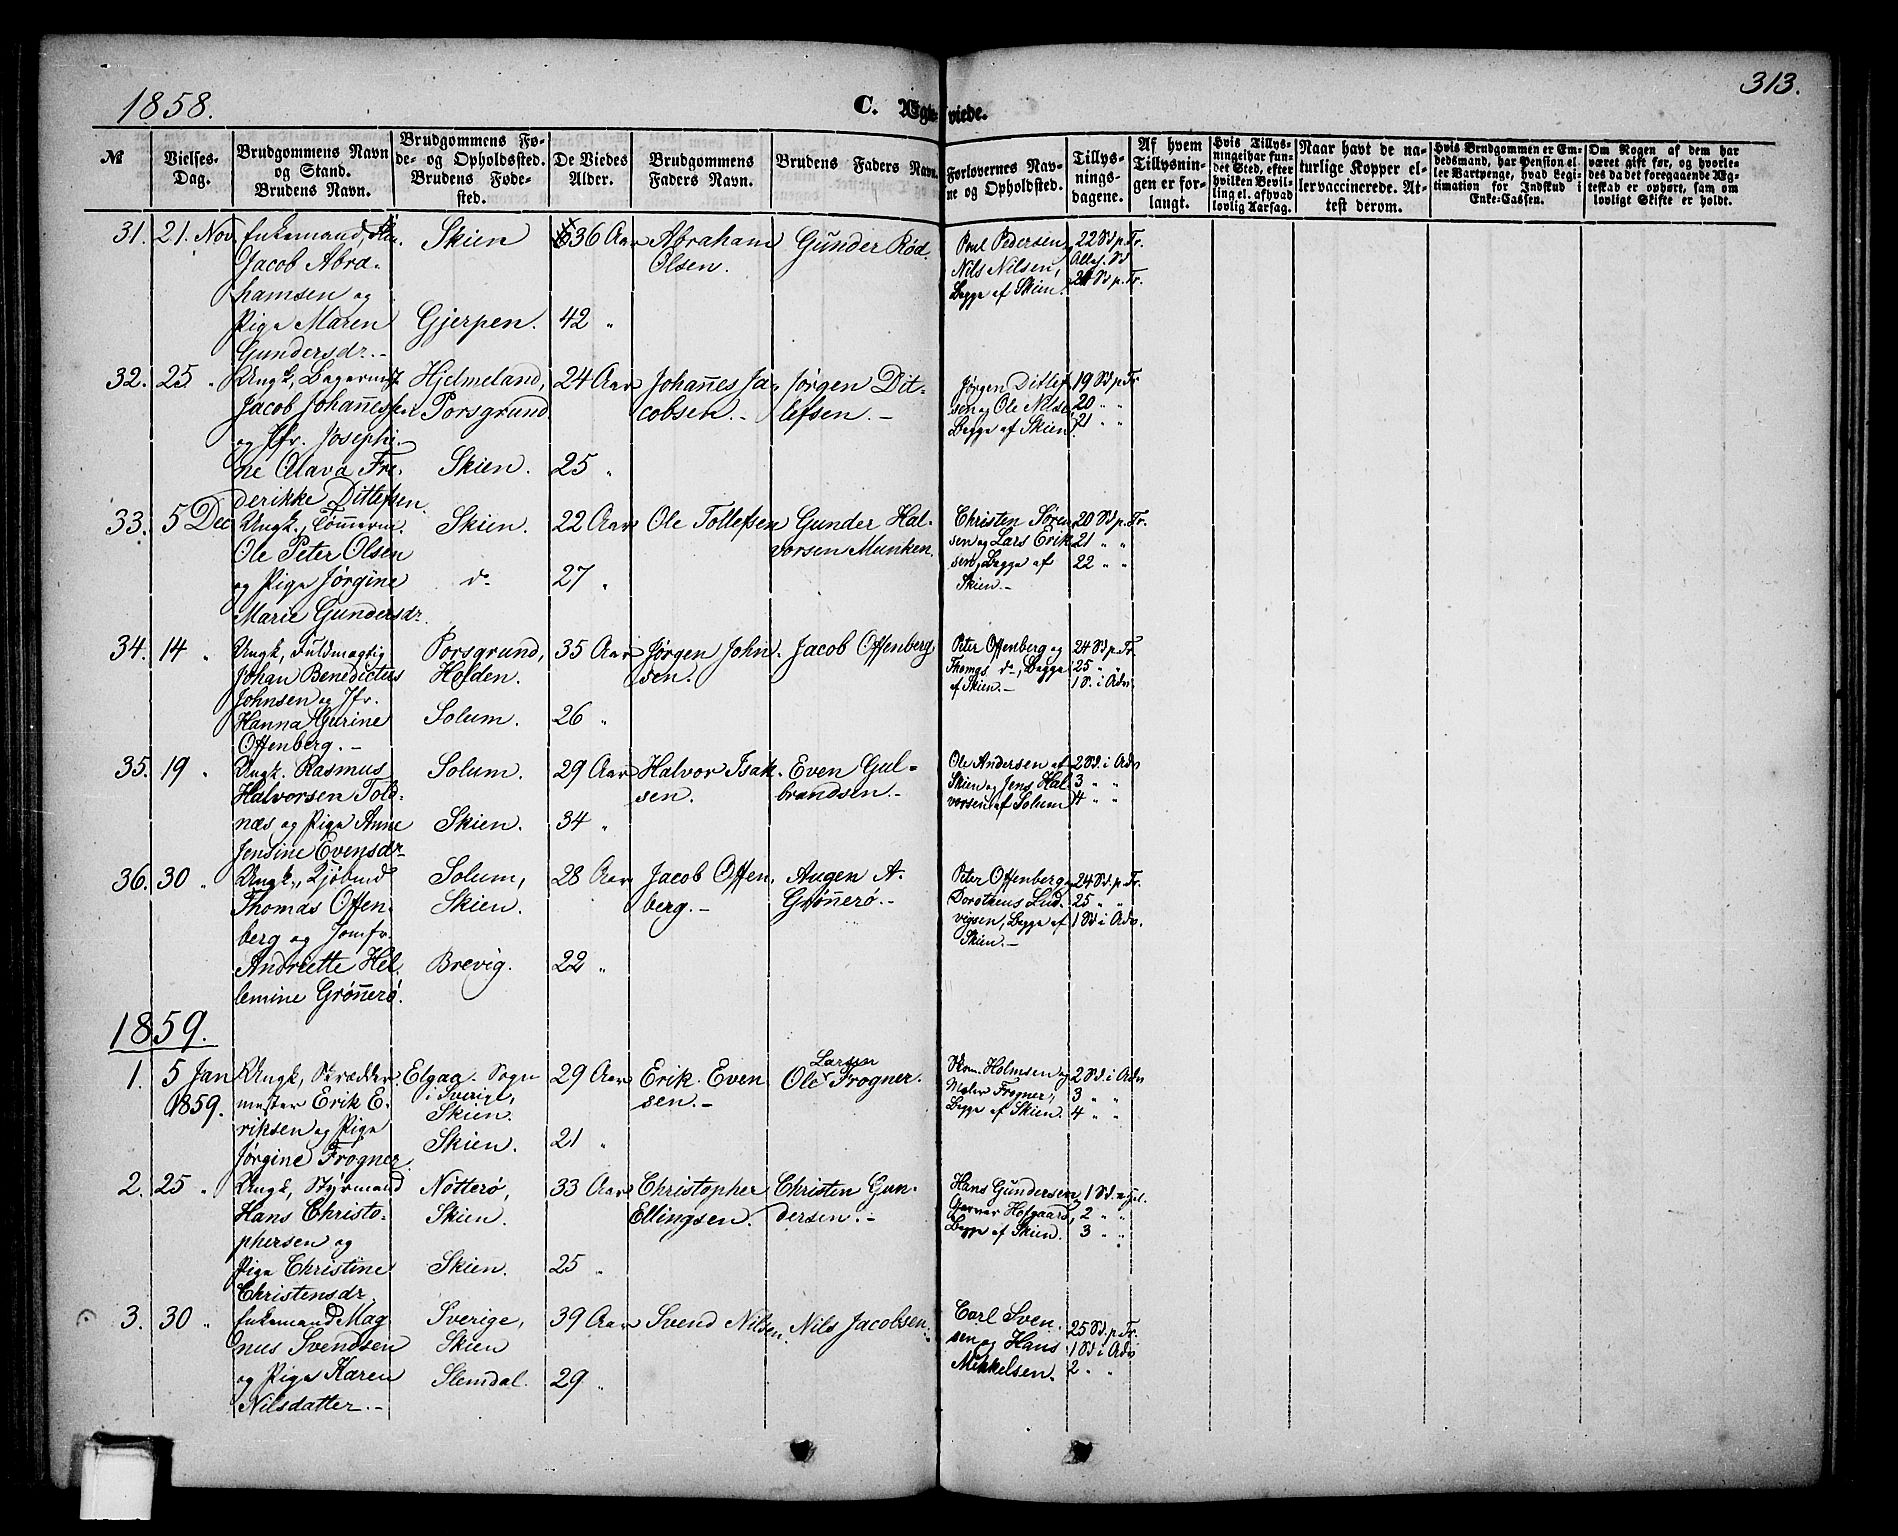 1858.
C. Ægteviede.
313.
No
Vielses-Dag.
Brudgommens Navn og Stand. Brudens Navn.
Brudgommens Fode- og Opholdsted. Brudens Fødested.
De Viedes Alder.
Brudgommens Faders Navn.
Brudens Faders Navn.
Forlovernes Navne og Opholdsted.
Tillysningsdagene.
Af hvem Tillysningen er forlangt.
Hvis Tillysningei har fundet Sted, efter hvilken Bevilling el. afhvad lovlig Aarsag.
Naar havt de naturlige Kopper eller vaccinerede. Attest derom.
Hvis Brudgommen er Embedsmand, har Pension eller Vartpenge, hvad Legitimation for Indskud i Enke-Cassen.
Om Nogen af dem har været gift før, og hvorledes da det foregaaende Ægteskab er ophørt, samt om lovligt Skifte er holdt.
31. 21. Nov Enkemand,
Jacob Abra-
hamsen og
Pige Maren
Gundersdr.-
Skien
Gjerpen.
36 Aar
42 "
Abraham
Olsen.
Gunder Rød.
Poul Pedersen,
Nils Nilsen,
Begge af Skien.
22 Sd p. Tr.
Alleh. Sd
24 Sd p. Tr.
32. 25 " Ungk, Bagermst
Jacob Johannessen
og Jfr. Josephi-
ne Olava Fre-
derikke Ditlefsen.
Hjelmeland,
Porsgrund
Skien.
24 Aar
25 "
Johannes Ja-
cobsen.-
Jørgen Dit-
lefsen.-
Jørgen Ditlef-
sen og Ole Nilsen
Begge af Skien
19 Sd p Tr
20 " "
21 " "
33. 5 Dec Ungk., Tømmerm.
Ole Peter Olsen
og Pige Jørgine
Marie Gundersdr.
Skien.
do
22 Aar
27 "
Ole Tollefsen
Gunder Hal-
vorsen Munken.
Christen Søren-
sen og Lars Erik-
sen, Begge af
Skien.-
20 Sd p. Tr.
21 " "
22 " "
34. 14 " Ungk, Fuldmægtig
Johan Benedictus
Johnsen og Jfr.
Hanna Gurine
Offenberg.-
Porsgrund,
Holden.
Solum.
35 Aar
26 "
Jørgen John-
sen.
Jacob Offenberg
Peter Offenberg og
Thomas do, Begge
af Skien.-
24 Sd p. Tr.
25 " "
1 S. i Adv.
35. 19 " Ungk. Rasmus
Halvorsen Told-
næs og Pige Anne
Jensine Evensdr
Solum.
Skien.
29 Aar
34 "
Halvor Isak-
sen.
Even Gul-
brandsen.-
Ole Andersen af
Skien og Jens Hal-
vorsen af Solum
2 Sd. i Adv
3 " "
4 " "
36. 30 " Ungk.,
Thomas Offen-
berg og Jomfr.
Andriette Hel-
lemine Grønnerö.
Solum,
Skien.
Brevig.
28 Aar
22 "
Jacob Offen-
berg.-
Augen A.
Grønnerö.-
Peter Offenberg,
Dorotheus Lud-
vigsen, Begge af
Skien.-
24 Sd. p. Tr.
25 " "
1 Sd i Adv.
1859.
1. 5 Jan
1859.
Ungk, Skrædder-
mester Erik E-
riksen og Pige
Jørgine Frogner.
Elgaa Sogn
i Sverige,
Skien.
Skien.
29 Aar
21 "
Erik Even-
sen.-
Larsen
Ole Frogner.
Skom. Holmsen og
Maler Frogner,
Begge af Skien.
2 Sd. i Adv
3 " "
4 " "
2. 25 " Ungk, Styrmand
Hans Christo-
phersen og
Pige Christine
Christensdr.
Nötterö,
Skien.
Skien.
33 Aar
25 "
Christopher
Ellingsen.
Christen Gun-
dersen.-
Hans Gundersen,
Garver Hofgaard,
Begge af Skien.
1 Sd.
2 " "
3 " "
3. 30 " Enkemand Mag-
nus Svendsen
og Pige Karen
Nilsdatter.-
Sverige,
Skien
Slemdal.
39 Aar
29 "
Svend Nilsen.
Nils Jacobsen.
Carl Sven-
sen og Hans
Mikkelsen.
25 Sd. p. Tr.
1 Sd i Adv
2 " "